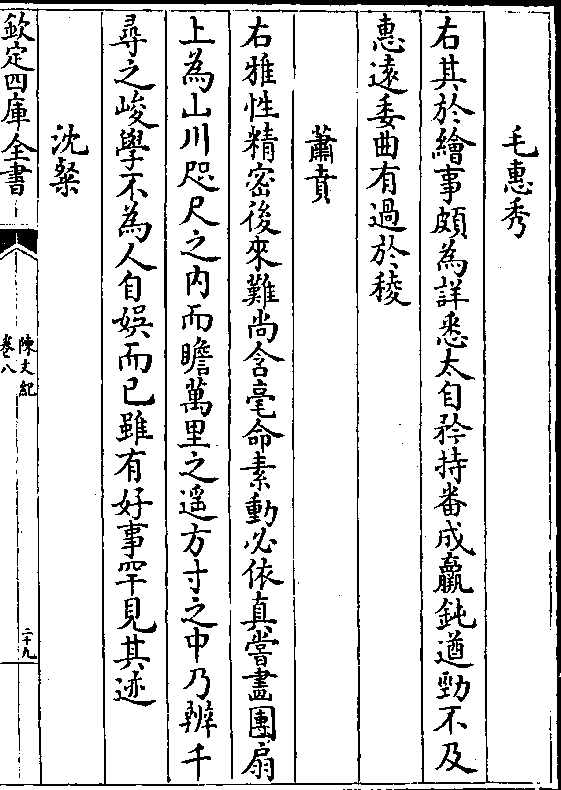 毛惠秀
右其於繪事頗為詳悉太自矜持番成羸鈍遒勁不及
惠遠委曲有過於稜
蕭賁
右雅性精密後來難尚含毫命素動必依真嘗畫團扇
上為山川咫尺之内而瞻萬里之遥方寸之中乃辨千
尋之峻學不為人自娛而已雖有好事罕見其迹
沈粲
欽定四庫全書
陳文紀
卷八
二十九